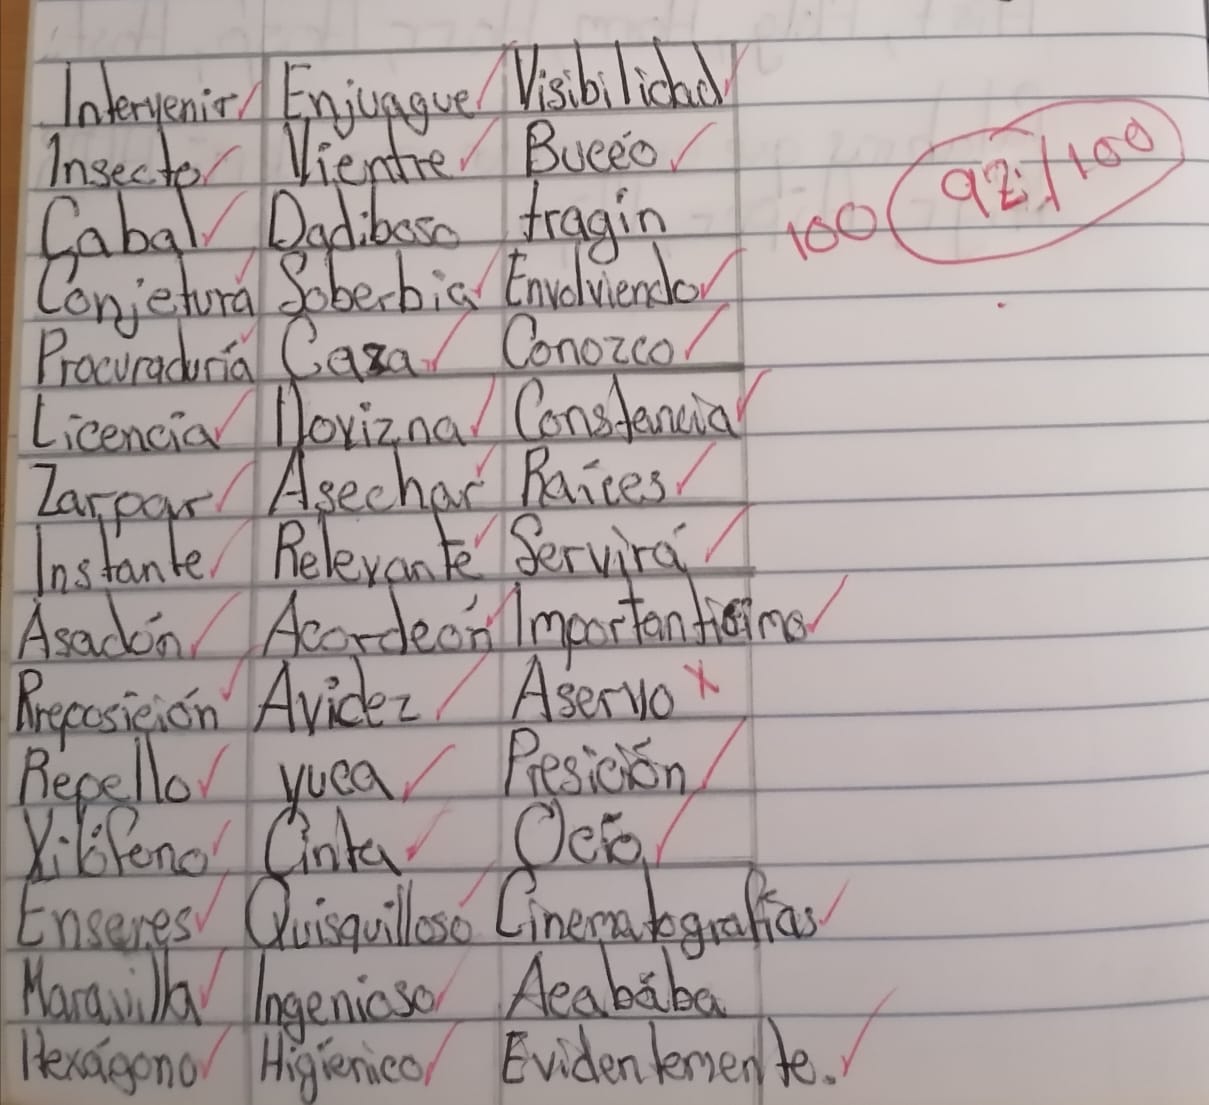 Intervenir Enjuague Visibilidad
Insecto Vientre Buceo
Cabal Dadiboso fragin
Conjetura Soberbia Envolviendo
Procuraduría Casa Conozco
Licencia Llovizna Constancia
Zarpar Asechar Raíces
Instante Relevante Servirá
Asadón Acordeón Importantísimo
Preposición Avidez Aservo
Repello yuca Presición
Xilófono Cinta Ocio
Enseres Quisquilloso Cinematografías
Maravilla Ingenioso Acabába
Hexágono Higienico Evidentemente.
100 92/100